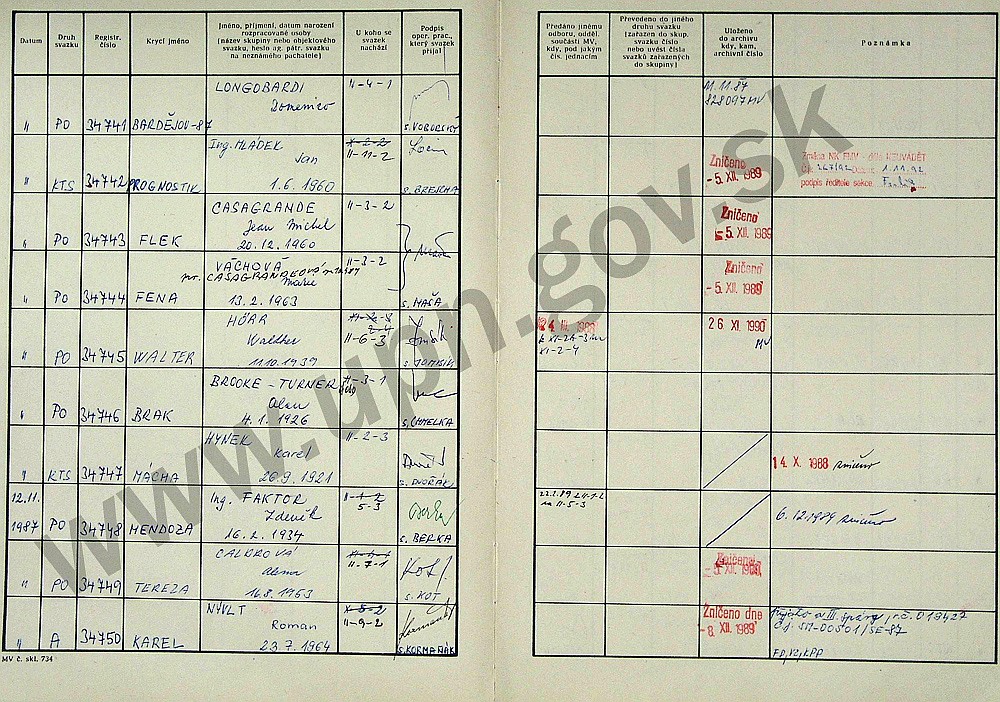 Datum
Druh svazku
Registr. číslo
Krycí jméno
Jméno, příjmení, datum narození
rozpracované osoby
(název skupiny nebo objektového
svazku, heslo ag. pátr. svazku
na neznámého pachatele)
U koho se
svazek
nachází
Podpis
oper. prac.,
který svazek
přijal
Předáno jinému
odboru, odděl.
součásti MV,
kdy, pod jakým
čís. jednacím
Převedeno do jiného
druhu svazku
(zařazen do skup.
svazku číslo
nebo uvést čísla
svazků zařazených
do skupiny)
Uloženo
do archivu
kdy, kam,
archivní číslo
Poznámka
LONGOBARDI II-4-1 11.11.87
Domenico 828097 MV
" PO 34741 BARDĚJOV-87 s. VOBORSKÝ
Ing. MLÁDEK
Jan II-11-2
" KTS 34742 PROGNOSTIK 1.6.1960 s. BREICHA
Zničeno
-5. XII. 1989
Změna NK FMV - dále NEUVÁDĚT
Č.j.: 267/92 Datum: 1.11.92
podpis ředitele sekce
CASAGRANDE II-3-2
Jean Michel
" PO 34743 FLEK 20.12.1960
Zničeno
-5. XII. 1989
VÁCHOVÁ II-3-2
CASAGRANDEOVÁ
Marie
" PO 34744 FENA 13.2.1963 s. MAŠA
Zničeno
-5. XII. 1989
HÖRR
Walther 2-4
II-6-3
" PO 34745 WALTER 11.10.1939
24. III. 1989
XI-2-4
26. XI. 1990
MV
BROOKE - TURNER II-3-1
Alan
" PO 34746 BRAK 4.1.1926 s. CHMELKA
HYNEK II-2-3
Karel
" KTS 34747 MÁCHA 20.9.1921 s. DVOŘÁK
14. X. 1988 zničeno
12.11. Ing. FAKTOR II-1-2
Zdeněk 5-3
1987 PO 34748 MENDOZA 16.2.1934 s. BERKA
na II-5-3
6.12.1989 zničeno
CALOROVÁ
Alena II-7-1
" PO 34749 TEREZA 16.8.1963 s. KOT
Zničeno
-5. XII. 1989
NÝVLT X-5-2
Roman II-9-2
" A 34750 KAREL 23.7.1964 s. KORMAŇÁK
Zničeno dne
-8. XII. 1989
III. správy, r.č. 019427
Čj: SM-00501/SE-87
MV č. skl. 734
www.upn.gov.sk